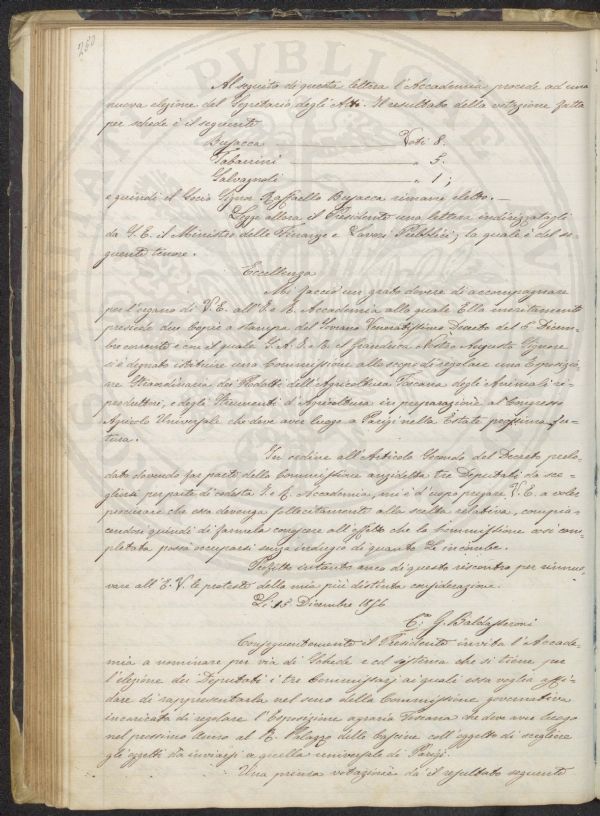 250
Al seguito di questa lettera l'Accademia procede ad una
nuova elezione del Segretario degli Atti. Il resultato della votazione fatta
per schede è il seguente
Busacca Voti 8.
Tabarrini " 5.
Salvagnoli " 1;
e quindi il Socio Sigre Raffaello Busacca rimane eletto. —
Legge allora il Presidente una lettera indirizzatagli
da S. E. il Ministro delle Finanze e Lavori Pubblici; la quale è del se-
guente tenore.
Eccellenza
Mi faccio un grato dovere di accompagnare
per l'organo di V. E. all' I. e R. Accademia alla quale Ella meritamente
presiede due Copie a stampa del Sovrano Veneratissimo Decreto del 6 Dicem-
bre corrente e con il quale S. A. I. e R. il Granduca Nostro Augusto Signore
si è degnato istituire una Commissione allo scopo di regolare una Esposizio-
ne Straordinaria dei Prodotti dell'Agricoltura Toscana degli Animali ri-
produttori, e degli Strumenti d'Agricoltura in preparazione al Congresso
Agricolo Universale che deve aver luogo a Parigi nella Estate prossima fu-
tura.
In ordine all'Articolo Secondo del Decreto prelo-
dato dovendo far parte della Commissione anzidetta tre Deputati da sce-
gliersi per parte di codesta I. e R. Accademia, mi è d'uopo pregare V. E. a voler
procurare che essa devenga sollecitamente alla scelta relativa, compia-
cendosi quindi di farmela conoscere all'effetto che la Commissione così com-
pletata possa occuparsi senza indugio di quanto Le incombe.
Profitto intanto anco di questo riscontro per rinnuo-
vare all'E. V. le proteste della mia più distinta considerazione.
Li 15 Dicembre 1856
G. Baldasseroni
Conseguentemente il Presidente invita l'Accade-
mia a nominare per via di Schede e col sistema che si tiene per
l'elezione dei Deputati i tre Commissarj ai quali essa voglia affi-
dare di rappresentarla nel seno della Commissione governativa
incaricata di regolare l'Esposizione agraria Toscana che deve aver luogo
nel prossimo Anno al R. Palazzo delle Cascine coll'oggetto di scegliere
gli oggetti da inviarsi a quella universale di Parigi.
Una prima votazione dà il resultato seguente